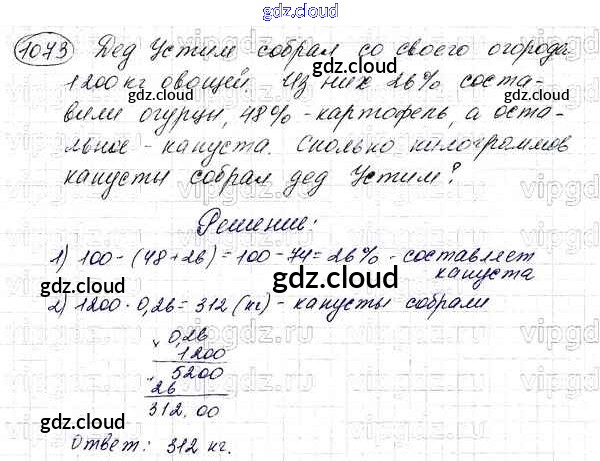 gdz.cloud
1073 Дед Устим собрал со своего огорода
1200 кг овощей. Из них 26% соста-
вили огурцы, 48% - картофель, а оста-
льное - капуста. Сколько килограммов
капусты собрал дед Устим?
Решение:
1) 100 - (48 + 26) = 100 - 74 = 26% - составляет
капуста
2) 1200 · 0,26 = 312 (кг) - капусты собрали
× 0,26
1200
5200
26
312,00
Ответ: 312 кг.